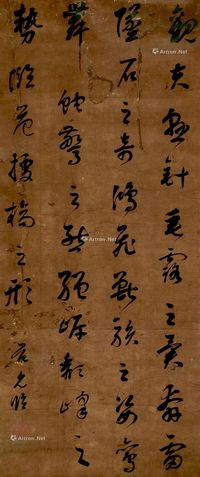 觀夫懸針垂露之異奔雷
墜石之奇鴻飛獸駭之姿鸞
舞蛇驚之態絕岸頹峰之
勢臨危據槁之形 范允臨
Artron.Net
Artron.Net
Artron.Net
Artron.Net